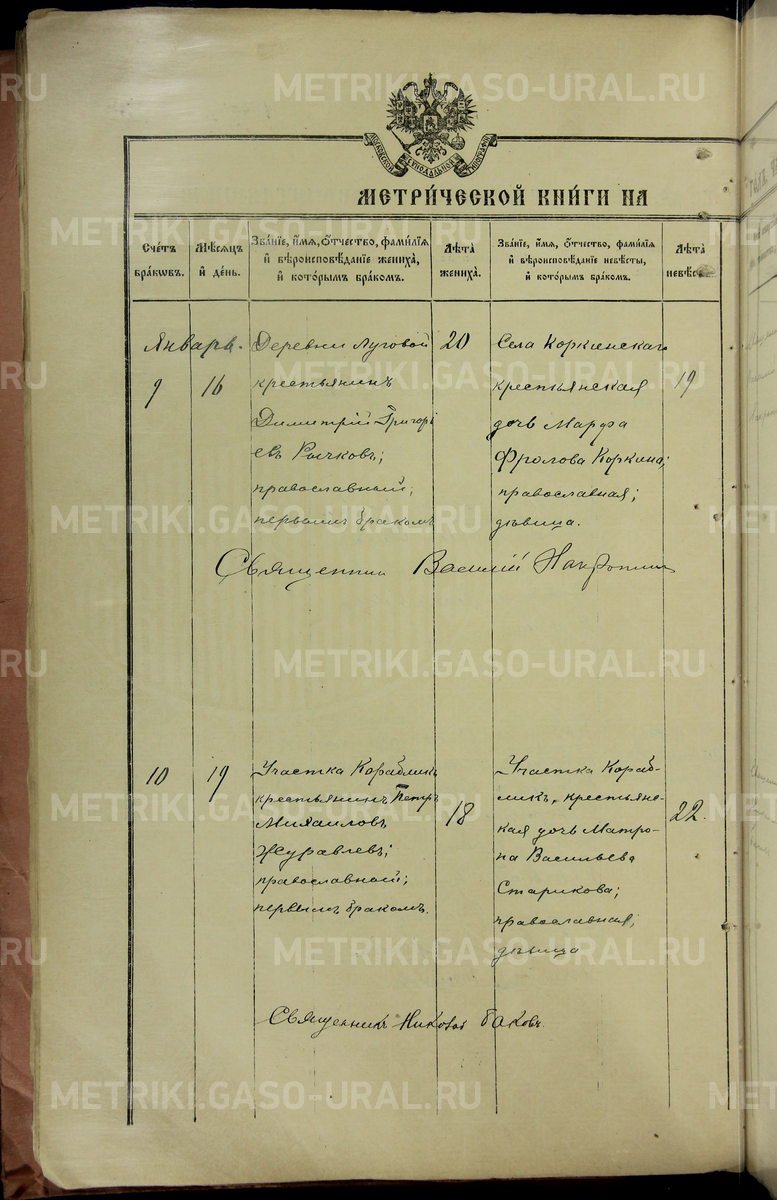 METRIKI.GASO-URAL.RU
МОСКОВСКОЙ СѴНОДАЛЬНОЙ ТИПОГРАФІИ
МЕТРИ́ЧЕСКОЙ КНИ́ГИ НА
Сче́тъ бра́кωвъ.
Мѣ́сяцъ и҆ де́нь.
Зва́нїе, и҆́мя, ѻ҆́тчество, фами́лїя и҆ вѣроисповѣ́данїе жениха̀, и҆ кото́рымъ бра́комъ.
Лѣ́та жениха̀.
Зва́нїе, и҆́мя, ѻ҆́тчество, фами́лїя и҆ вѣроисповѣ́данїе невѣ́сты, и҆ кото́рымъ бра́комъ.
Лѣ́та невѣ́сты.
Январь.
9
16
Деревни Луговой
крестьянинъ
Димитрій Григорь
евъ Рычковъ;
православный;
первымъ бракомъ
20
Села Коркинскаго
крестьянская
дочь Марѳа
Фролова Коркина;
православная;
дѣвица.
19
Священник Василій
10
19
Участка Корабликъ
крестьянинъ Петръ
Михаиловъ
Журавлевъ;
православный;
первымъ бракомъ.
18
Участка Кораб-
ликъ, крестьянс-
кая дочь Матро-
на Васильева
Старикова;
православная,
дѣвица
22.
Священникъ Николай